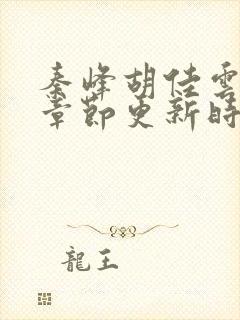 秦峰胡佳雲
章節更新時
龍王